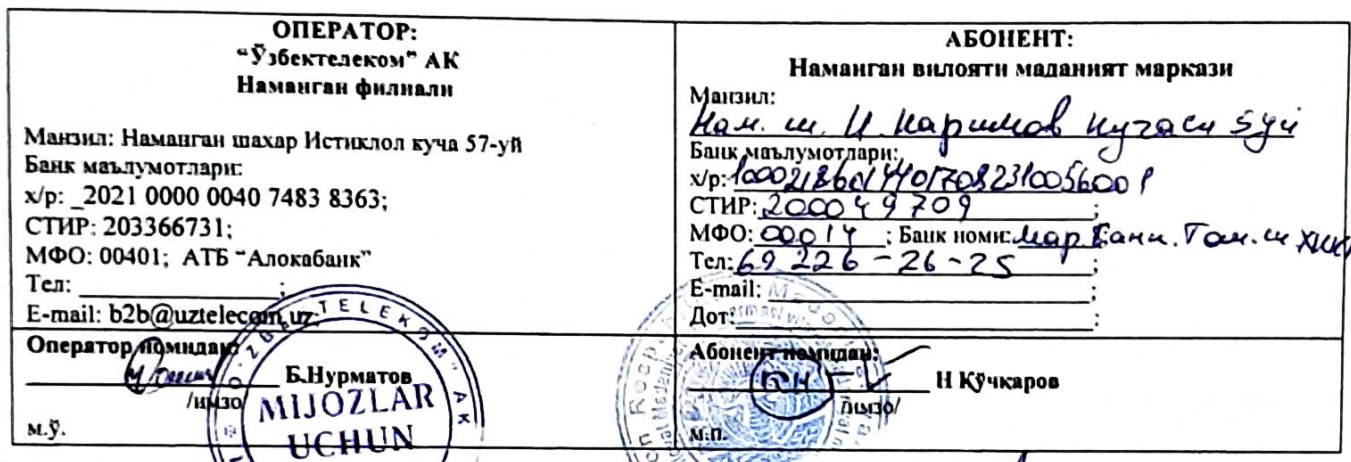 ОПЕРАТОР:
“Ўзбектелеком” АК
Наманган филиали
Манзил: Наманган шахар Истиклол куча 57-уй
Банк маълумотлари:
х/р: _2021 0000 0040 7483 8363;
СТИР: 203366731;
МФО: 00401; АТБ “Алокабанк”
Тел: ;
E-mail: b2b@uztelecom.uz;
Оператор номидан:
Б.Нурматов
/имзо/
м.ў.
MIJOZLAR
UCHUN
АБОНЕНТ:
Наманган вилояти маданият маркази
Манзил:
Нам. ш. И. Каримов кучаси 5 уй
Банк маълумотлари:
х/р:
СТИР: 200049709 ;
МФО: 00014 ; Банк номи: Мар Банк. Тош. ш ХККМ
Тел: 69 226-26-25 ;
E-mail: ;
Дот: ;
Абонент номидан:
Н Қўчқаров
/имзо/
М.П.